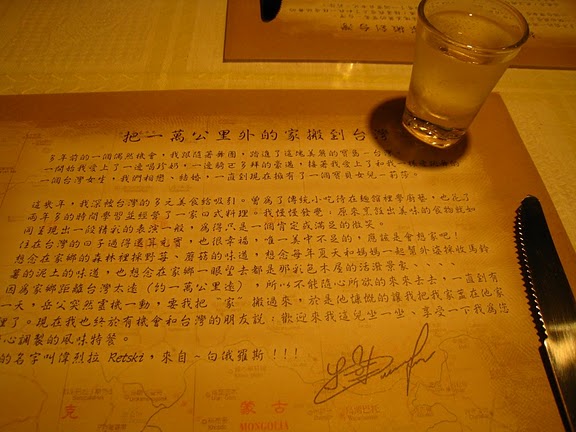 來到台灣
把一萬公里外的家搬到台灣
多年前的一個偶然機會，我跟隨著舞團，踏進了這塊美麗的寶島－台灣。
一開始我愛上了一邊喝珍奶，一邊嗑芭樂的
一個台灣女生，我們相戀、結婚，一直到現在擁有了一個寶貝女兒－莉莎。
這幾年，我深被台灣的多元美食給吸引。曾為了傳統小吃待在麵館裡學廚藝，也花了
兩年多的時間學習並經營了一家日式料理。我慢慢發覺：原來烹飪出美味的食物就如
同呈現出一段精彩的表演一般，為得只是一個肯定或滿足的微笑。
住在台灣的日子過得還算充實，也很幸福，唯一美中不足的，應該是會想家吧！
想念在家鄉的森林裡採野莓、蘑菇的味道，想念每年夏天和媽媽一起到外婆採收馬鈴
薯的泥土的味道，也想念在家鄉一眼望去都是那彩色木屋的活潑景象。
因為家鄉距離台灣太遠（約一萬公里遠），所以不能隨心所欲的來來去去，一直到有
一天，岳公突然靈機一動，要我把－家－搬過來，於是他慷慨的讓我把我家蓋在他家
裡了。現在我也終於有機會和台灣的朋友說：歡迎來我這兒坐一坐、享受一下我為您
心調製的風味特餐。
的名字叫偉烈拉 Retski，來自－白俄羅斯！！！
克
蒙古
MONGOLIA